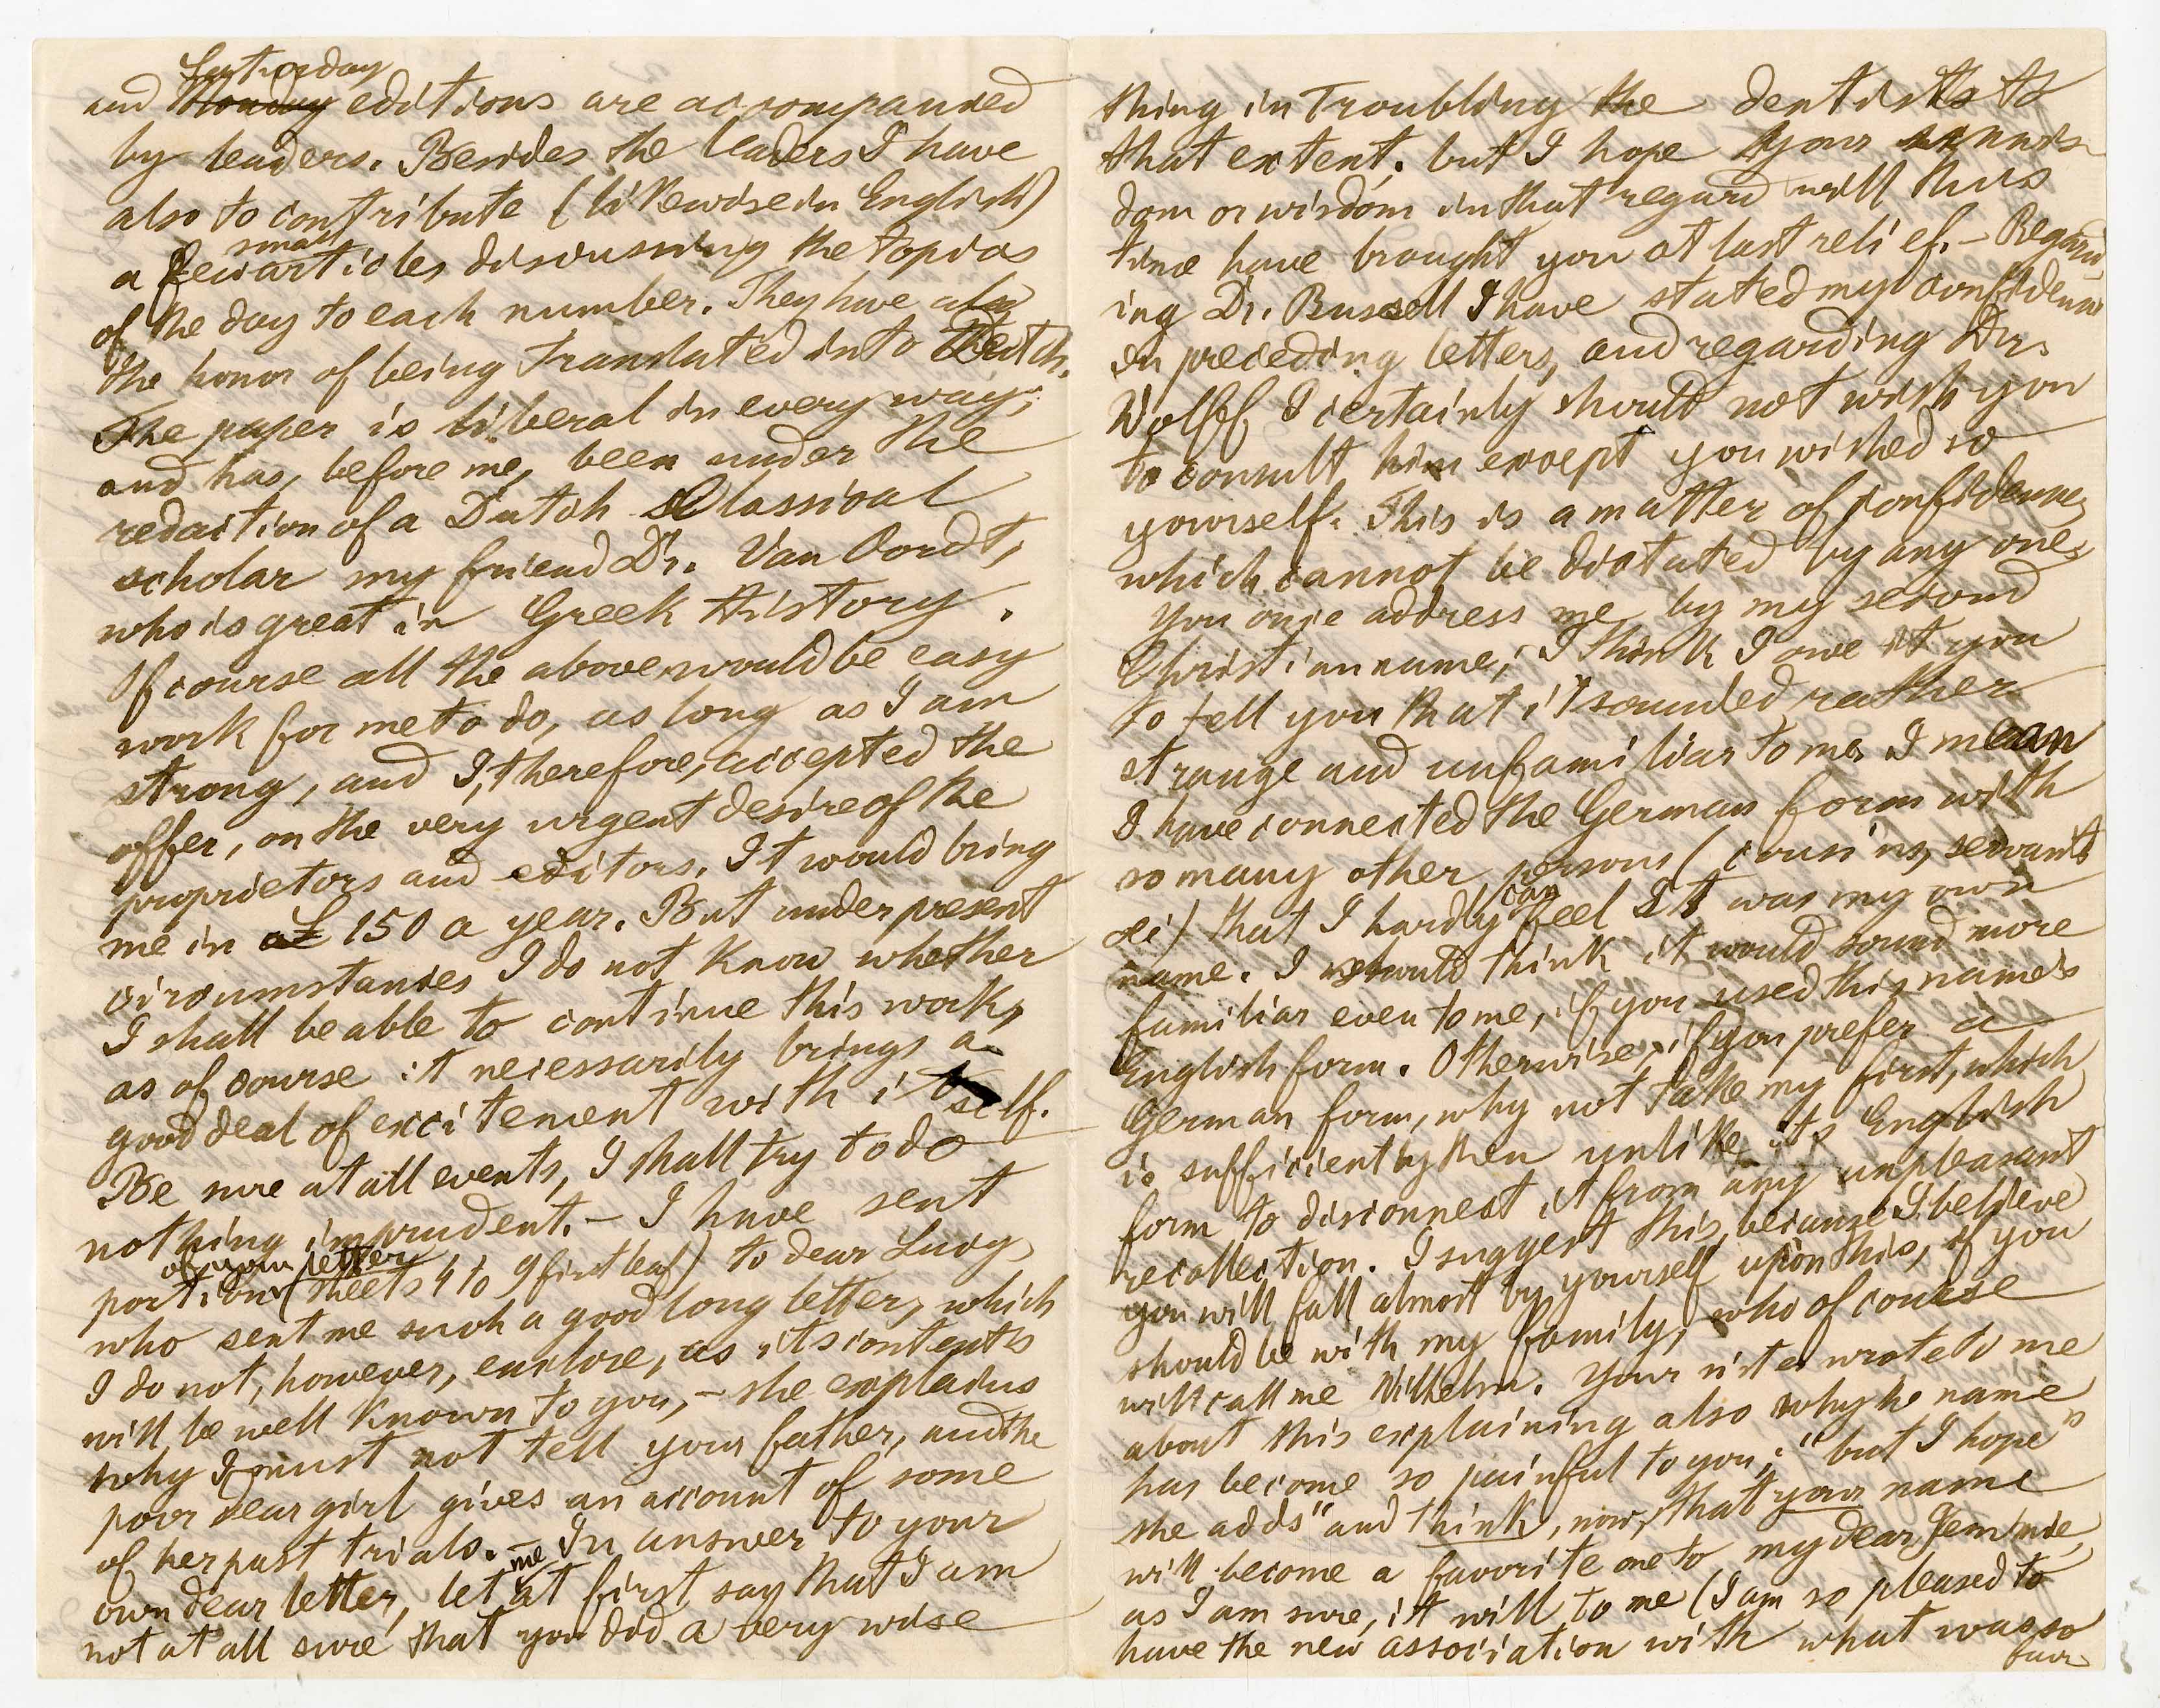 Saturday
and Monday editions are accompanied
by leaders. Besides the leaders I have
also to contribute (likewise in English)
small
a few articles discussing the topics
of the day to each number. They have also
the honor of being translated into Dutch.
The paper is liberal in every way,
and has, before me, been under the
redaction of a Dutch Classical
scholar my friend Dr. Van Oordt,
who is great in Greek History.
Of course all the above would be easy
work for me to do, as long as I am
strong, and I, therefore, accepted the
offer, on the very urgent desire of the
proprietors and editors. It would bring
me in a £ 150 a year. But under present
circumstances I do not know whether
I shall be able to continue this work,
as of course it necessarily brings a
good deal of excitement with itself.
Be sure at all events, I shall try to do
nothing imprudent. – I have sent
of your letter
portions (sheets 4 to 9 first leaf) to dear Lucy
who sent me such a good long letter, which
I do not, however, enclose, as its contents
will be well known to you, – she explains
why I must not tell your father, and the
poor dear girl gives an account of some
of her past trials. – In answer to your
me
own dear letter, let at first say that I am
not at all sure that you did a very wise
thing in troubling the dentists to
that extent, but I hope your
dom or wisdom in that regard will this
time have brought you at last relief. – Regard-
ing Dr. Bussell I have stated my confidence
in preceding letters, and regarding Dr.
Wolff, I certainly should not wish you
to consult him except you wished so
yourself. This is a matter of confidence,
which cannot be dictated by any one,
You once address me by my second
Christian name; I think I owe it you
to tell you that it sounded rather
strange and unfamiliar to me. I mean
I have connected the German form with
so many other persons (cousins, servants
can
&c) that I hardly feel it was my own
name. I should think it would sound more
familiar even to me, if you used this name's
English form. Otherwise, if you prefer a
German form, why not take my first, which
is sufficiently then unlike its English
form to disconnect it from any unpleasant
recollection. I suggest this, because I believe
you will fall almost by yourself upon this, if you
should be with my family, who of course
will call me Wilhelm. Your sister wrote to me
about this explaining also why he name
has become so painful to you; "but I hope"
she adds "and think, now, that your name
will become a favorite one to my dear Jemmie,
as I am sure, it will to me (I am so pleased to
have the new association with what was so